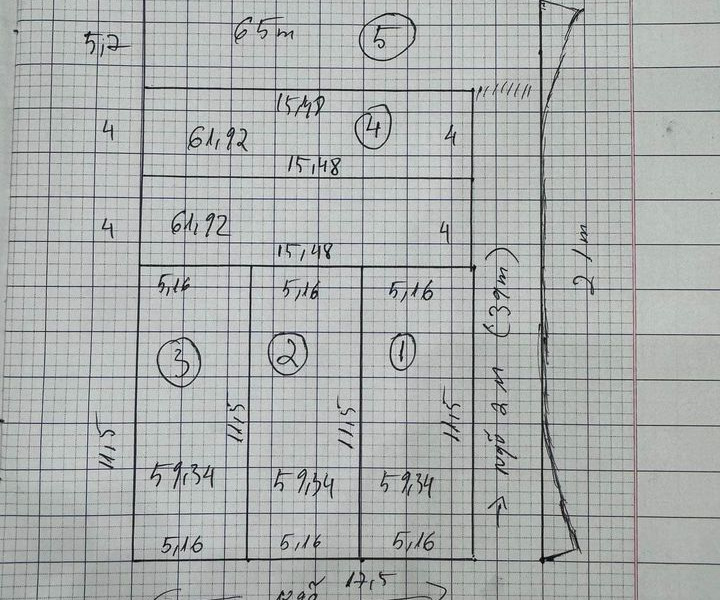 65m
5,2
5
15,48
4
61,92
4
4
15,48
4
61,92
4
15,48
5,16
5,16
5,16
3
2
1
11,5
11,5
11,5
11,5
59,34
59,34
59,34
5,16
5,16
5,16
17,5
ngõ
→ ngõ 2M (39m)
21m